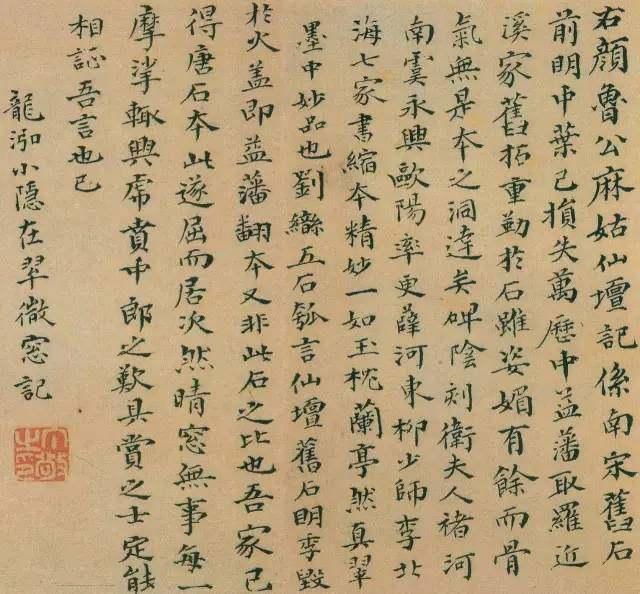 右顏魯公麻姑仙壇記係南宋舊石
前明中葉已損失萬曆中益藩取羅近
溪家舊拓重勒於石雖姿媚有餘而骨
氣無是本之洞達矣碑陰刻衛夫人褚河
南虞永興歐陽率更薛河東柳少師李北
海七家書縮本精妙一如玉枕蘭亭然真翠
墨中妙品也劉巒五石瓠言仙壇舊石明季毀
於火蓋即益藩翻本又非此石之比也吾家已
得唐石本此遂屈而居次然晴窓無事每一
摩挲輒興虎賁中郎之歎具賞之士定能
相証吾言也已
龍泓小隱在翠微窓記